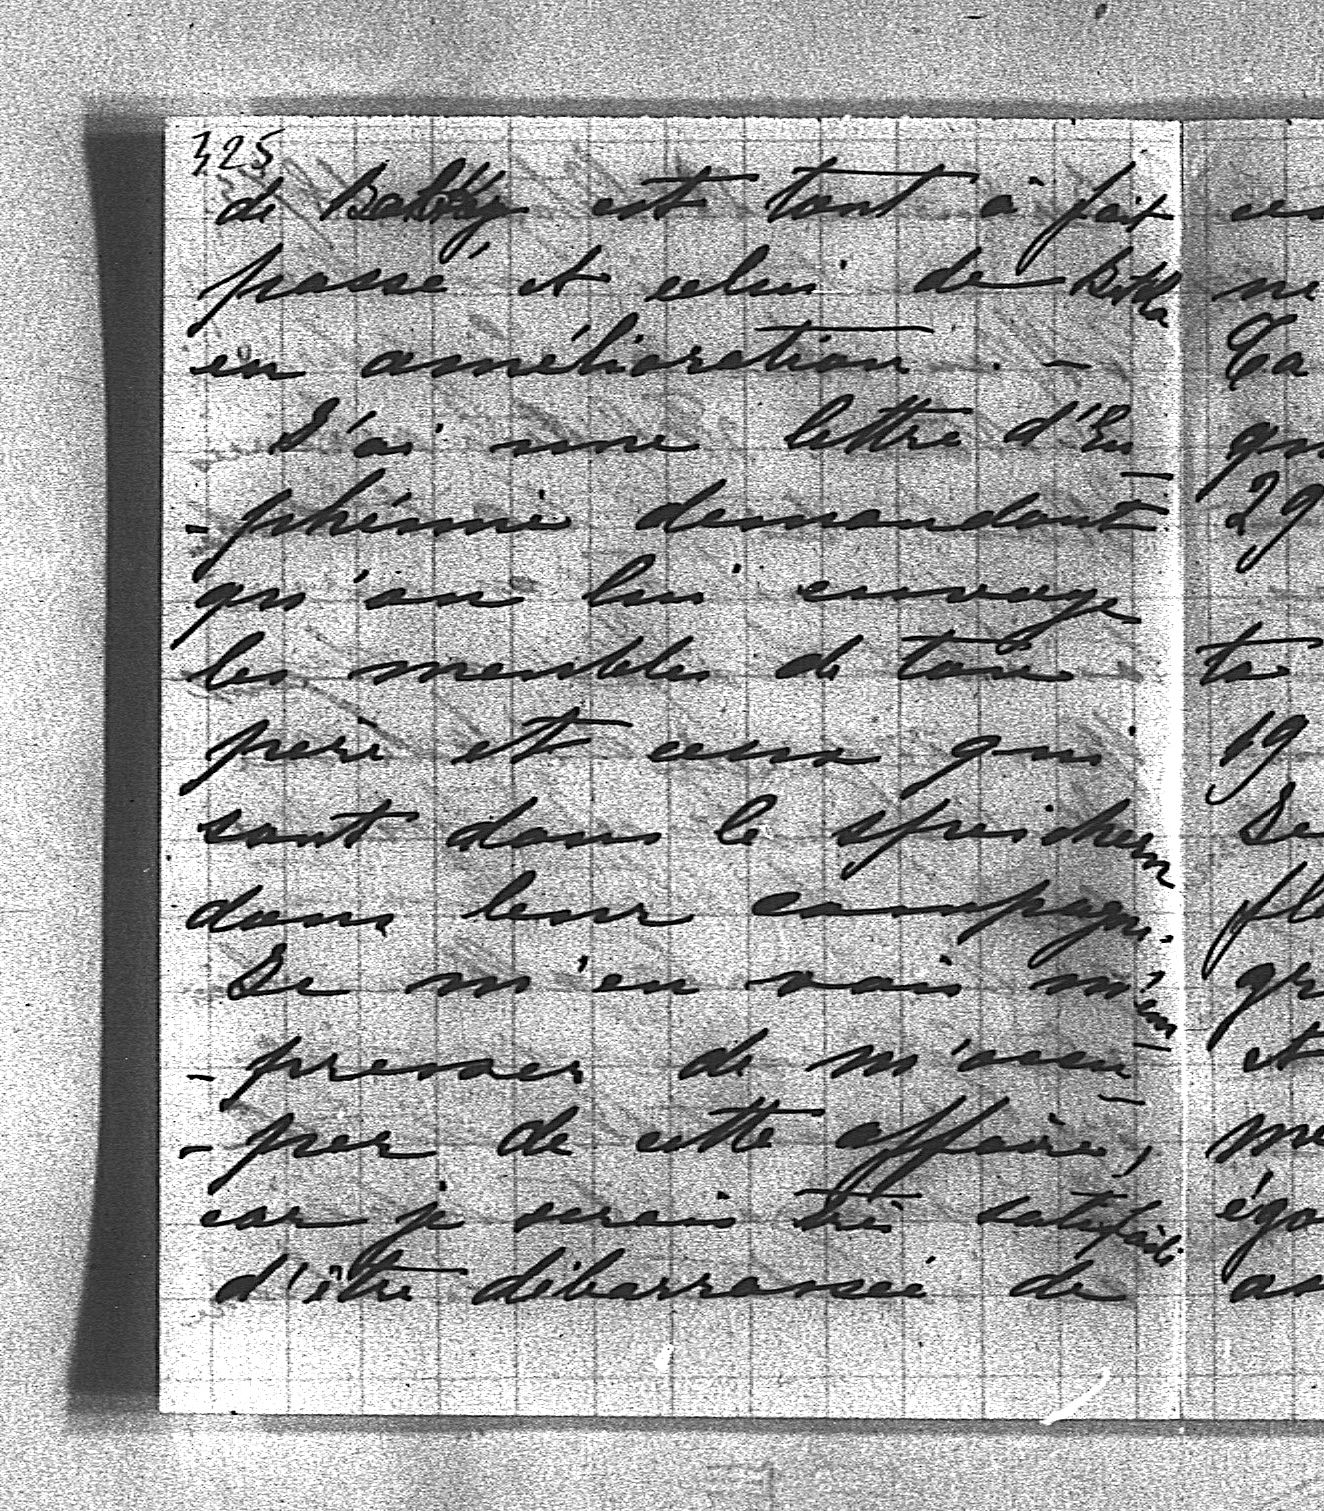 325
de est tout à fait
passé et celui de
en amélioration. -
J'ai une lettre d'Eu
-phémie demandant
qu'on lui envoye
les meubles de ton
père et ceux qui
sont dans le speicher
dans leur campagne.
Je m'en vais m'em
-presser de m'occu
-per de cette affaire,
car je serais très satisfaite
d'être débarrassée de
29
ta
19
et